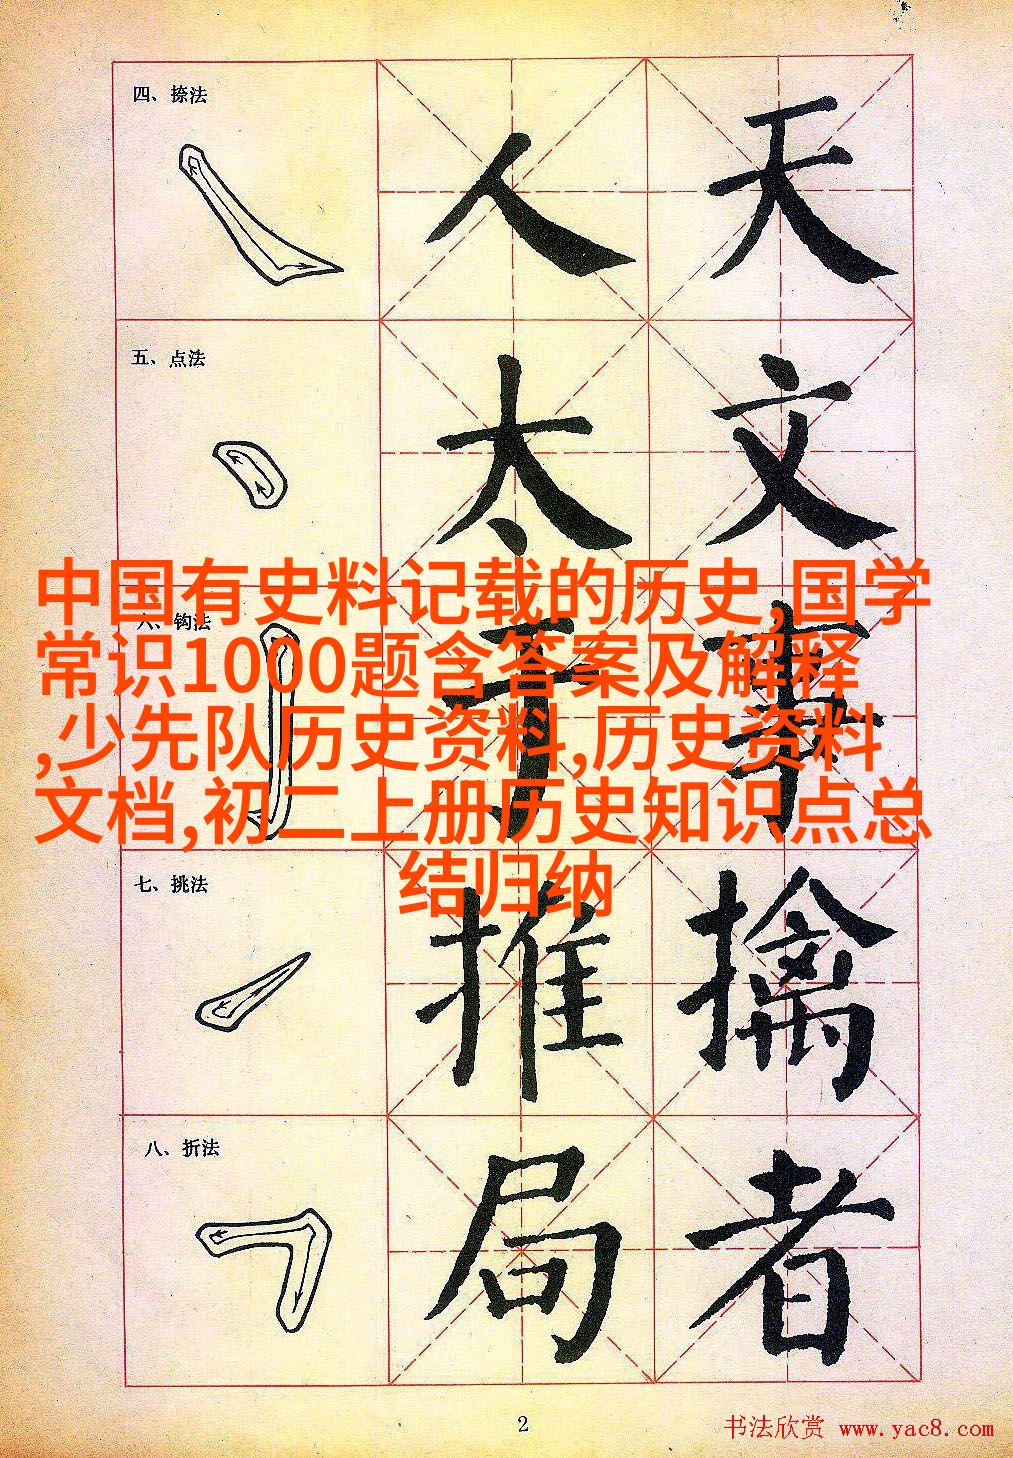 四、捺法
人 天
五、点法
太 文
中国有史料记载的历史,国学
六、钩法
常识1000题含答案及解释
于 事
,少先队历史资料,历史资料
文档,初二上册历史知识点总
结归纳
七、挑法
推 擒
八、折法
局 者
2
书法欣赏 www.yac8.com